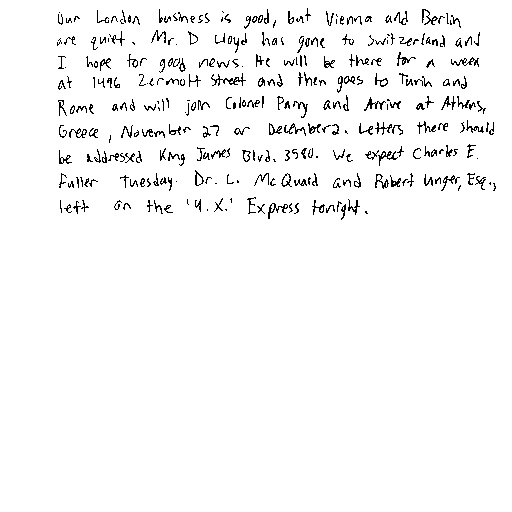 Our London business is good, but Vienna and Berlin
are quiet. Mr. D Lloyd has gone to Switzerland and
I hope for good news. He will be there for a week
at 1496 Zermott Street and then goes to Turin and
Rome and will join Colonel Parry and Arrive at Athens,
Greece, November 27 or December 2. Letters there should
be addressed King James Blvd. 3580. We expect Charles E.
Fuller Tuesday. Dr. L. McQuaid and Robert Unger, Esq.,
left on the 'Y.X.' Express tonight.